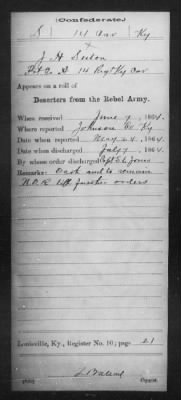 (Confederate.)
S | 14 Cav | Ky
J H Seeton
Pvt Co. D 14 Regt Ky Cav
Appears on a roll of
Deserters from the Rebel Army.
When received June 9, 1864.
Where reported Johnson Co Ky
Date when reported May 24, 1864.
Date when discharged July 7, 1864.
By whose order discharged Capt S E Jones
Remarks: Oath and to remain
N.O.R. till further orders
Louisville, Ky., Register No. 10; page 21
Copyist.